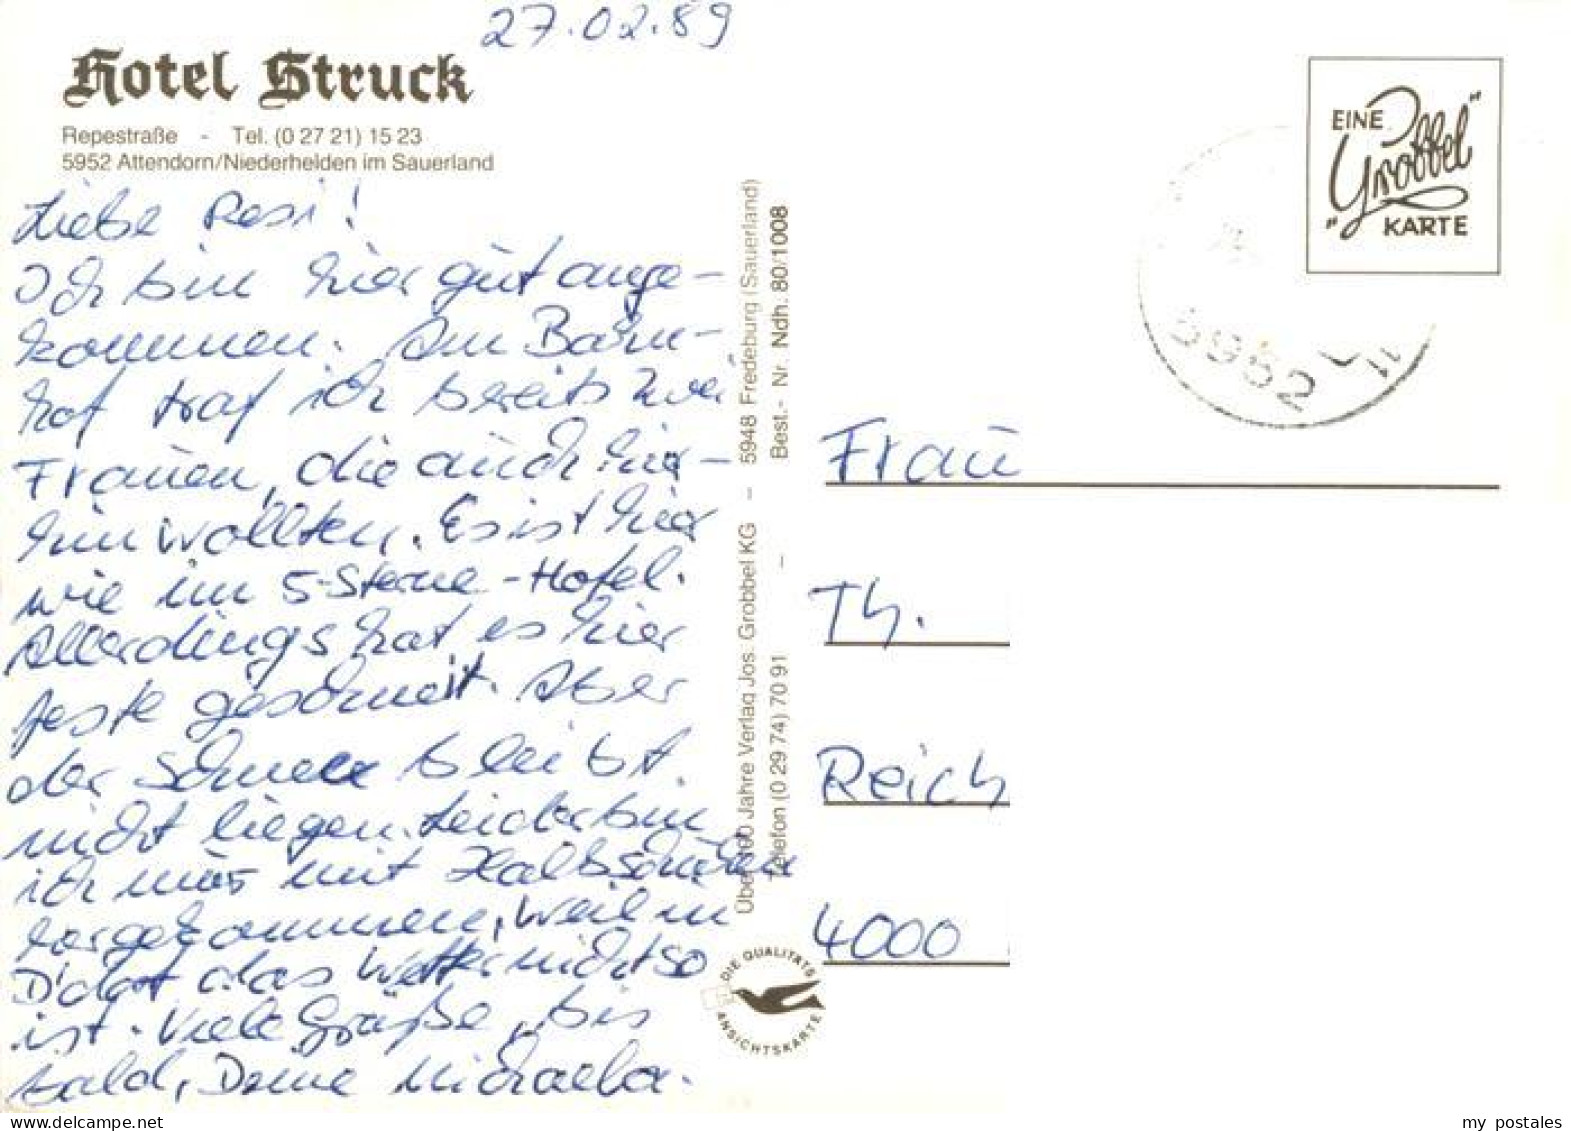 27.02.89
Hotel Struck
Repestraße - Tel. (0 27 21) 15 23
5952 Attendorn/Niederhelden im Sauerland
Liebe Rosi!
Ich bin hier gut ange-
kommen. Am Bahn-
hof traf ich bereits zwei
Frauen, die auch hier-
hin wollten. Es ist hier
wie im 5-Sterne-Hotel.
Allerdings hat es hier
feste geschneit. Aber
der Schnee bleibt
nicht liegen. Leider bin
ich nur mit Halbschuhen
hergekommen, weil in
D'dorf das Wetter nicht so
ist. Viele Grüße, bis
bald, Deine Michaela.
Über 100 Jahre Verlag Jos. Grobbel KG – 5948 Fredeburg (Sauerland)
Telefon (0 29 74) 70 91 – Best.- Nr. Ndh. 80/1008
DIE QUALITÄTS
ANSICHTSKARTE
EINE
"Grobbel"
KARTE
5952
Frau
Th.
Reich
4000
my postales